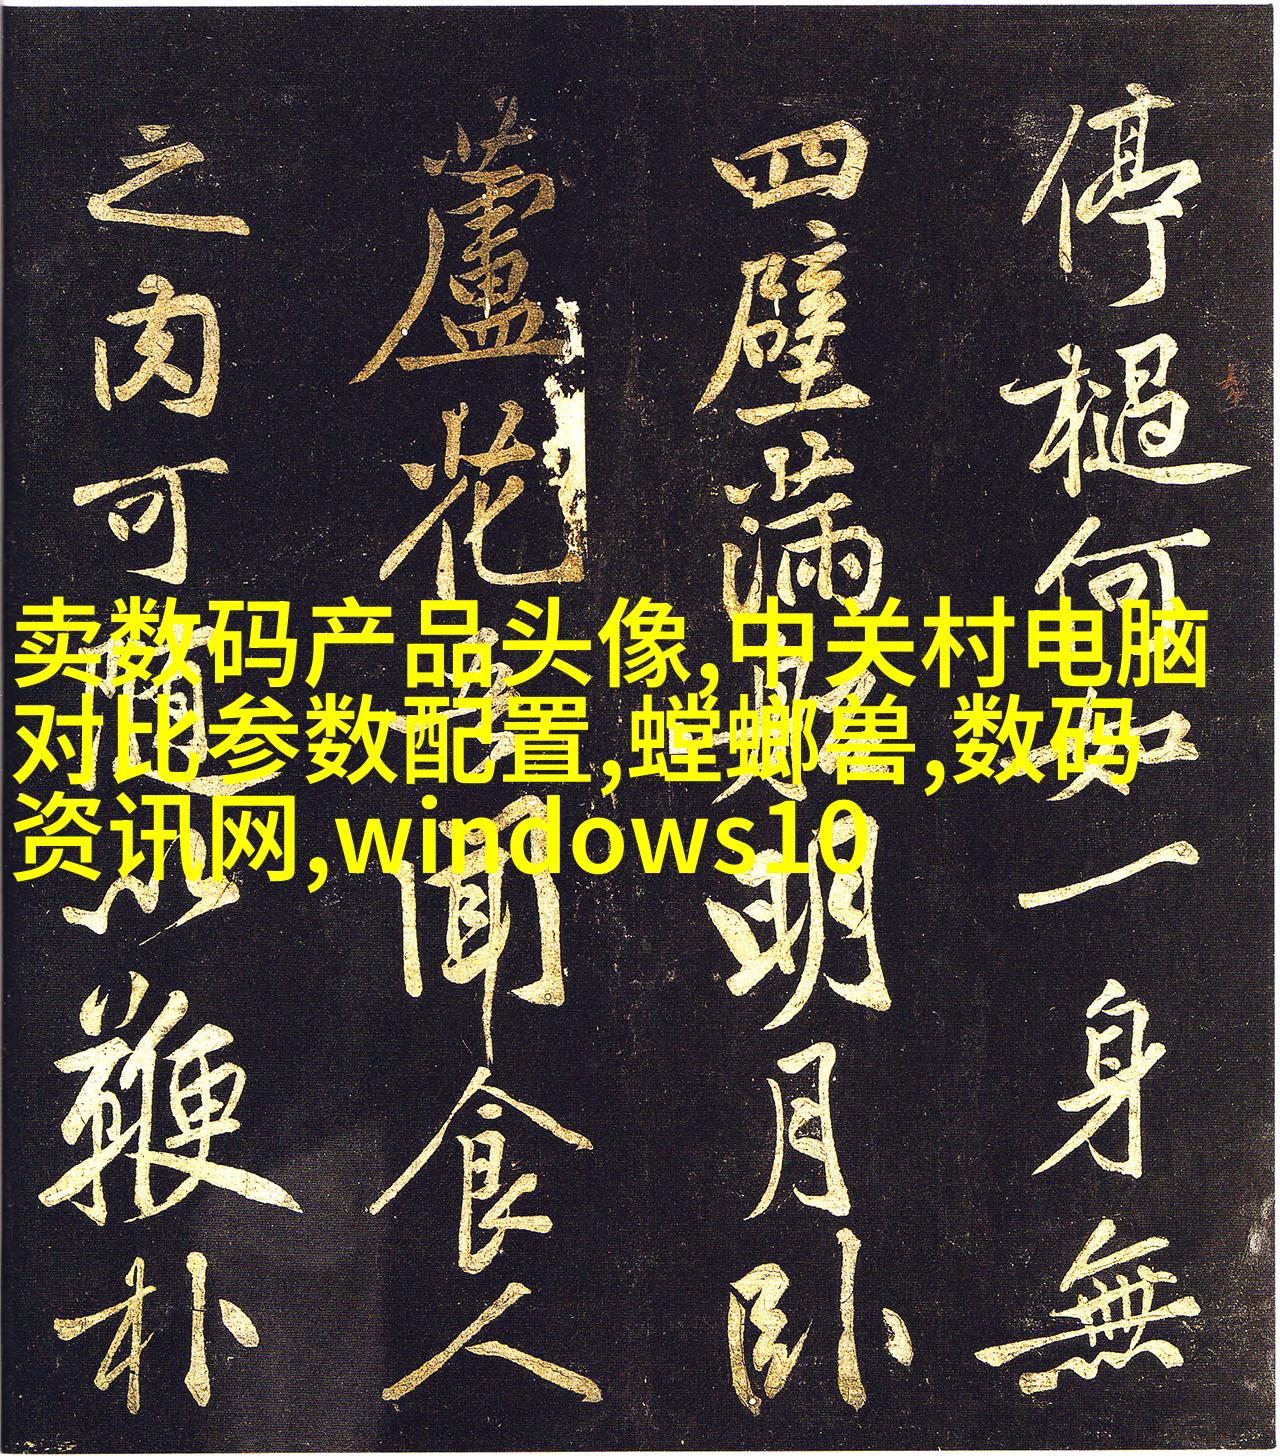 停檛何如一身無
四壁滿明月臥
蘆花吾聞食人
之肉可隨以鞭朴
卖数码产品头像,中关村电脑
对比参数配置,螳螂兽,数码
资讯网,windows10